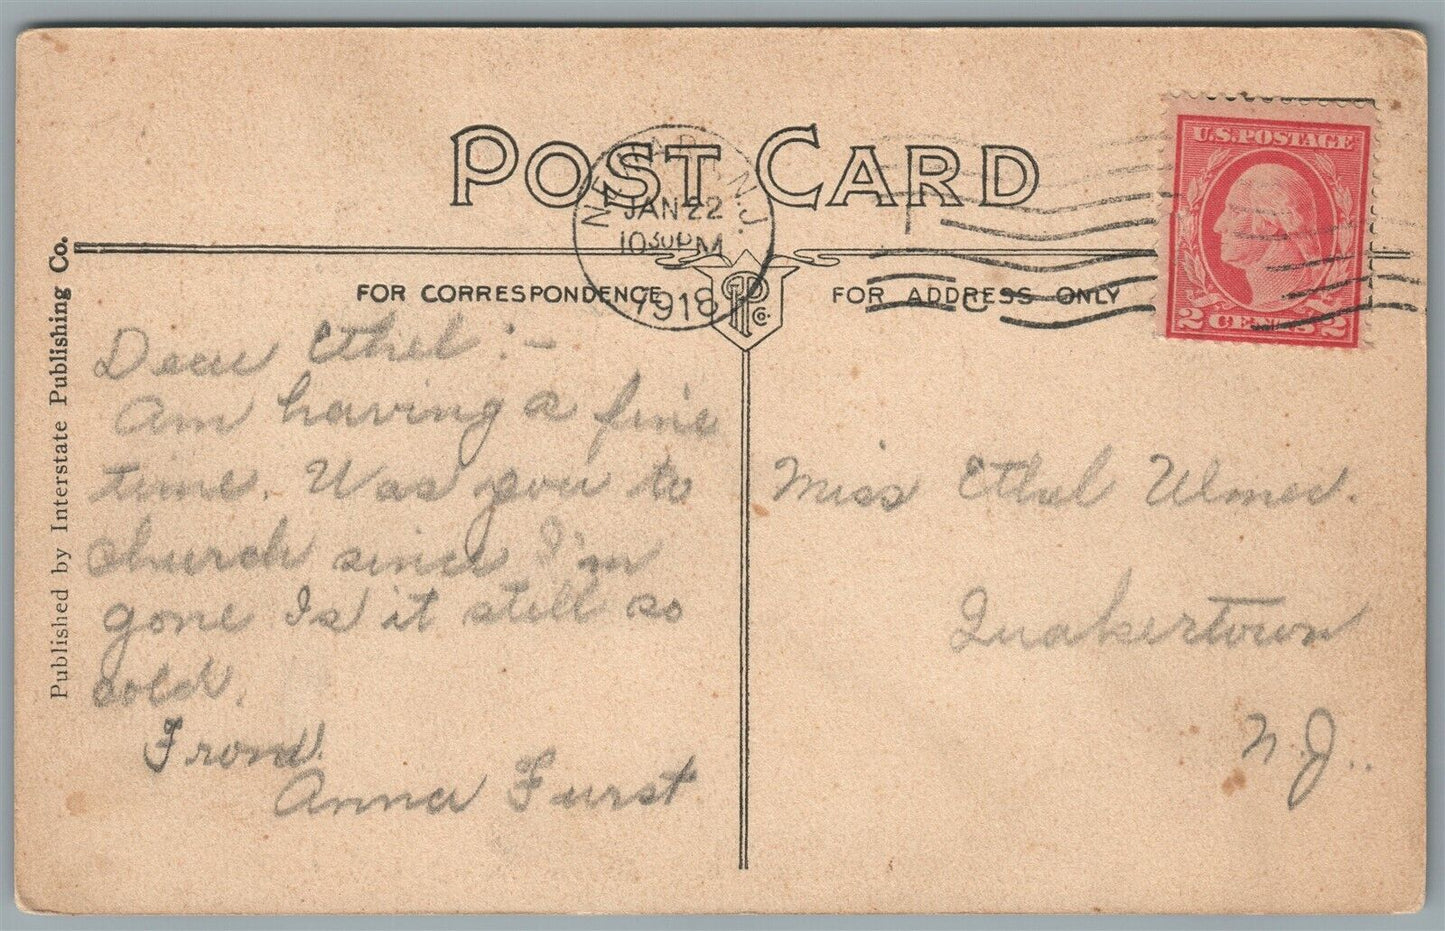 POST CARD
NEWARK, N.J.
JAN 22
1030PM
1918
U.S. POSTAGE
2 CENTS 2
FOR CORRESPONDENCE
FOR ADDRESS ONLY
Published by Interstate Publishing Co.
Dear Ethel:-
Am having a fine
time. Was you to
church since I'm
gone Is it still so
cold.
From
Anna Furst
Miss Ethel Ulmer.
Quakertown
N.J..